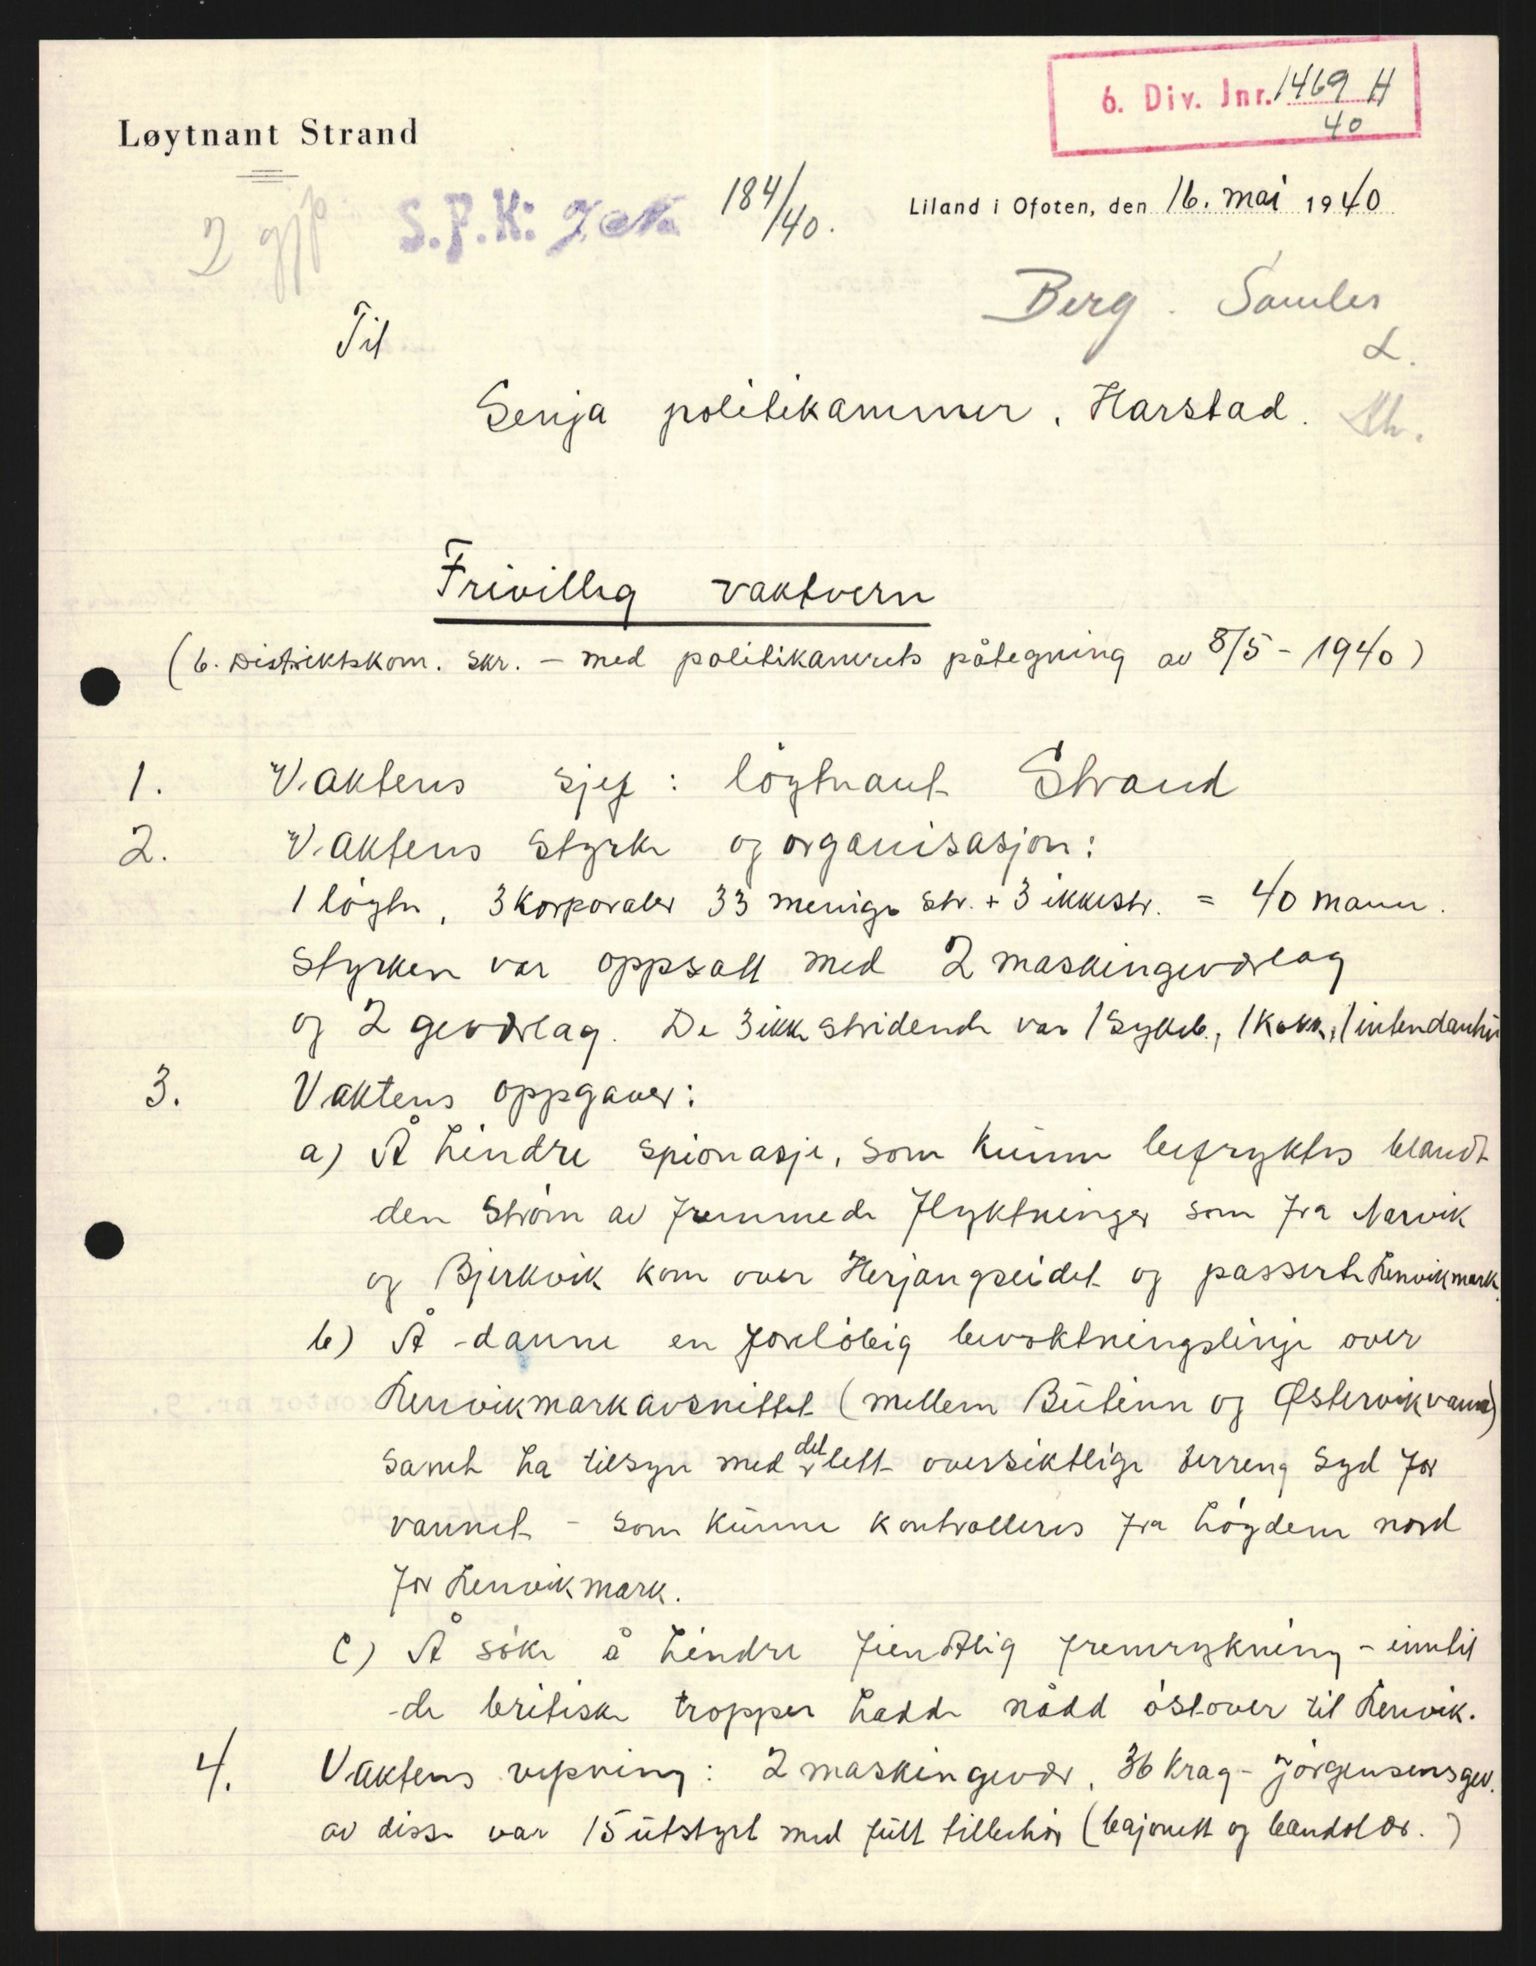 6. Div. Jnr. 1469 H
40
Løytnant Strand
2 gjp
S.P.K: J. No
184/40.
Liland i Ofoten, den 16. mai 1940
Berg. Samles
L.
Til
Senja politikammer, Harstad.
Frivillig vaktvern
(6. Distriktskom. skr. – med politikamrets påtegning av 8/5 – 1940)
1. Vaktens sjef : løytnant Strand
2. Vaktens styrke og organisasjon:
1 løytn, 3 korporaler 33 menige str. + 3 ikkestr. = 40 mann.
Styrken var oppsatt med 2 maskingeværlag
og 2 geværlag. De 3 ikke stridende var 1 Sykeb., 1 kokk, 1 intendanturs
3. Vaktens oppgaver:
a) Å hindre spionasje, som kunne befryktes blandt
den strøm av fremmede flyktninger som fra Narvik
og Bjerkvik kom over Herjangseidet og passerte Lenvikmark.
b) Å danne en foreløbig bevoktningslinje over
Lenvikmarkavsnittet (mellem Butinn og Østervikvann)
samt ha tilsyn med det lett oversiktlige terreng syd for
vannet – som kunne kontrolleres fra høydene nord
for Lenvikmark.
c) Å søke å hindre fiendtlig fremrykning – inntil
de britiske tropper hadde nådd østover til Lenvik.
4. Vaktens vepning : 2 maskingevær, 36 Krag-Jørgensensgev.
av disse var 15 utstyrt med fullt tilbehør (bajonett og bandolær.)